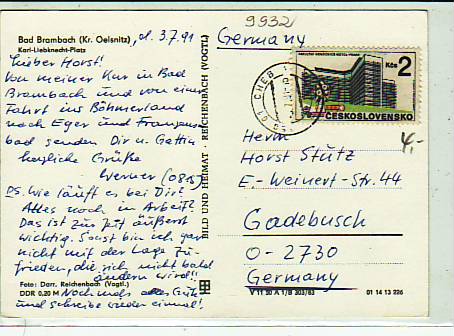 9932
Bad Brambach (Kr. Oelsnitz), d. 3.7.91
Karl-Liebknecht-Platz
Lieber Horst!
Von meiner Kur in Bad
Brambach und von einer
Fahrt ins Böhmerland
nach Eger und Franzens-
bad senden Dir u. Gattin
herzliche Grüße
Werner (08 )
PS. Wie läuft es bei Dir?
Alles noch in Arbeit?
Das ist zur Zeit äußerst
wichtig. Sonst bin ich gar
nicht mit der Lage zu-
frieden, die sich nicht bald
ändern wird!!
Foto: Darr, Reichenbach (Vogtl.)
DDR 0,20 M Nochmals alles Gute
und schreibe wieder einmal!
BILD UND HEIMAT · REICHENBACH (VOGTL)
Germany
CHEB
Kčs 2
ČESKOSLOVENSKO
4,-
Herrn
Horst Stutz
E.-Weinert-Str. 44
Gadebusch
O-2730
Germany
V 11 50 A 1/B 303/83 01 14 13 226